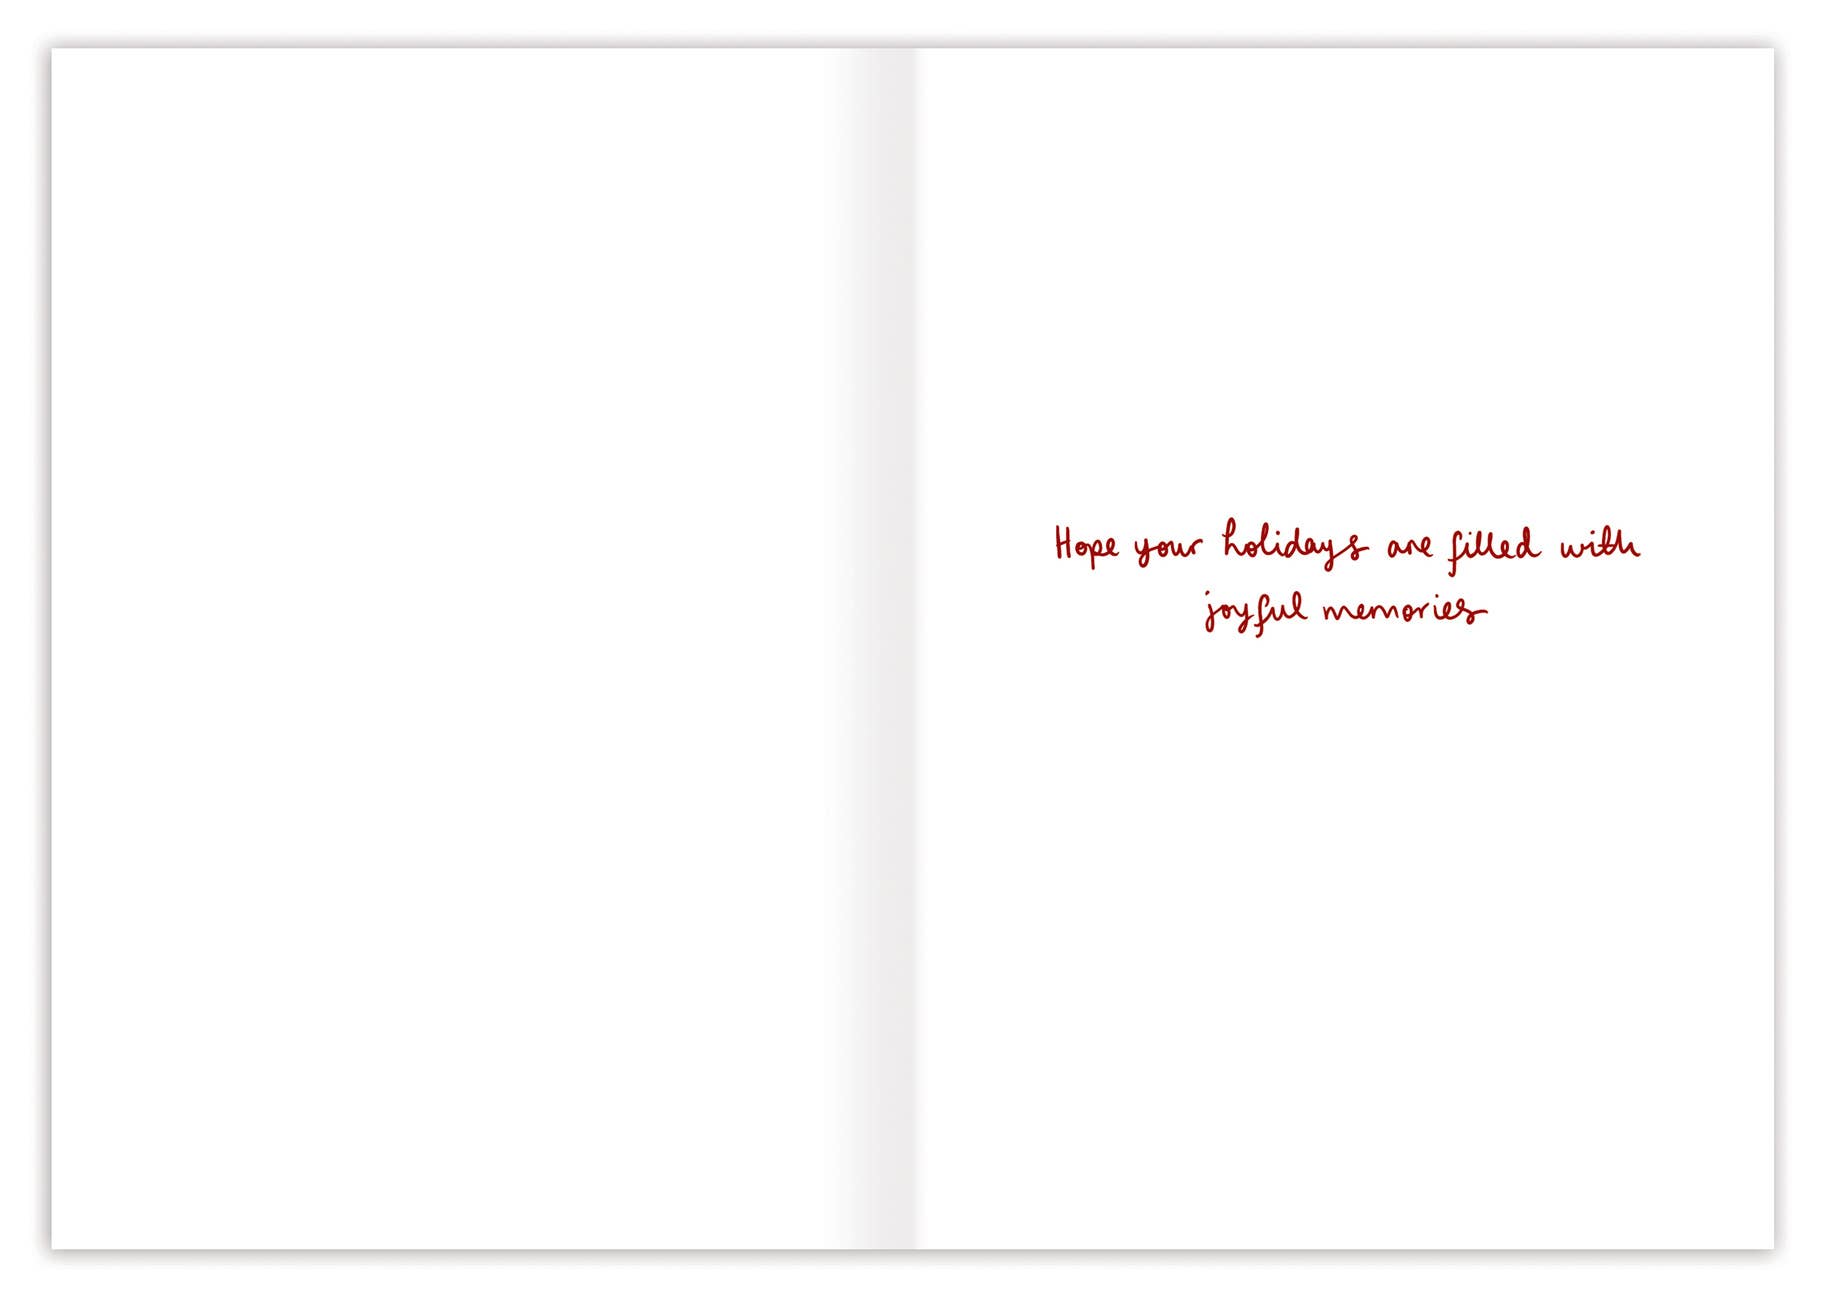 Hope your holidays are filled with
joyful memories